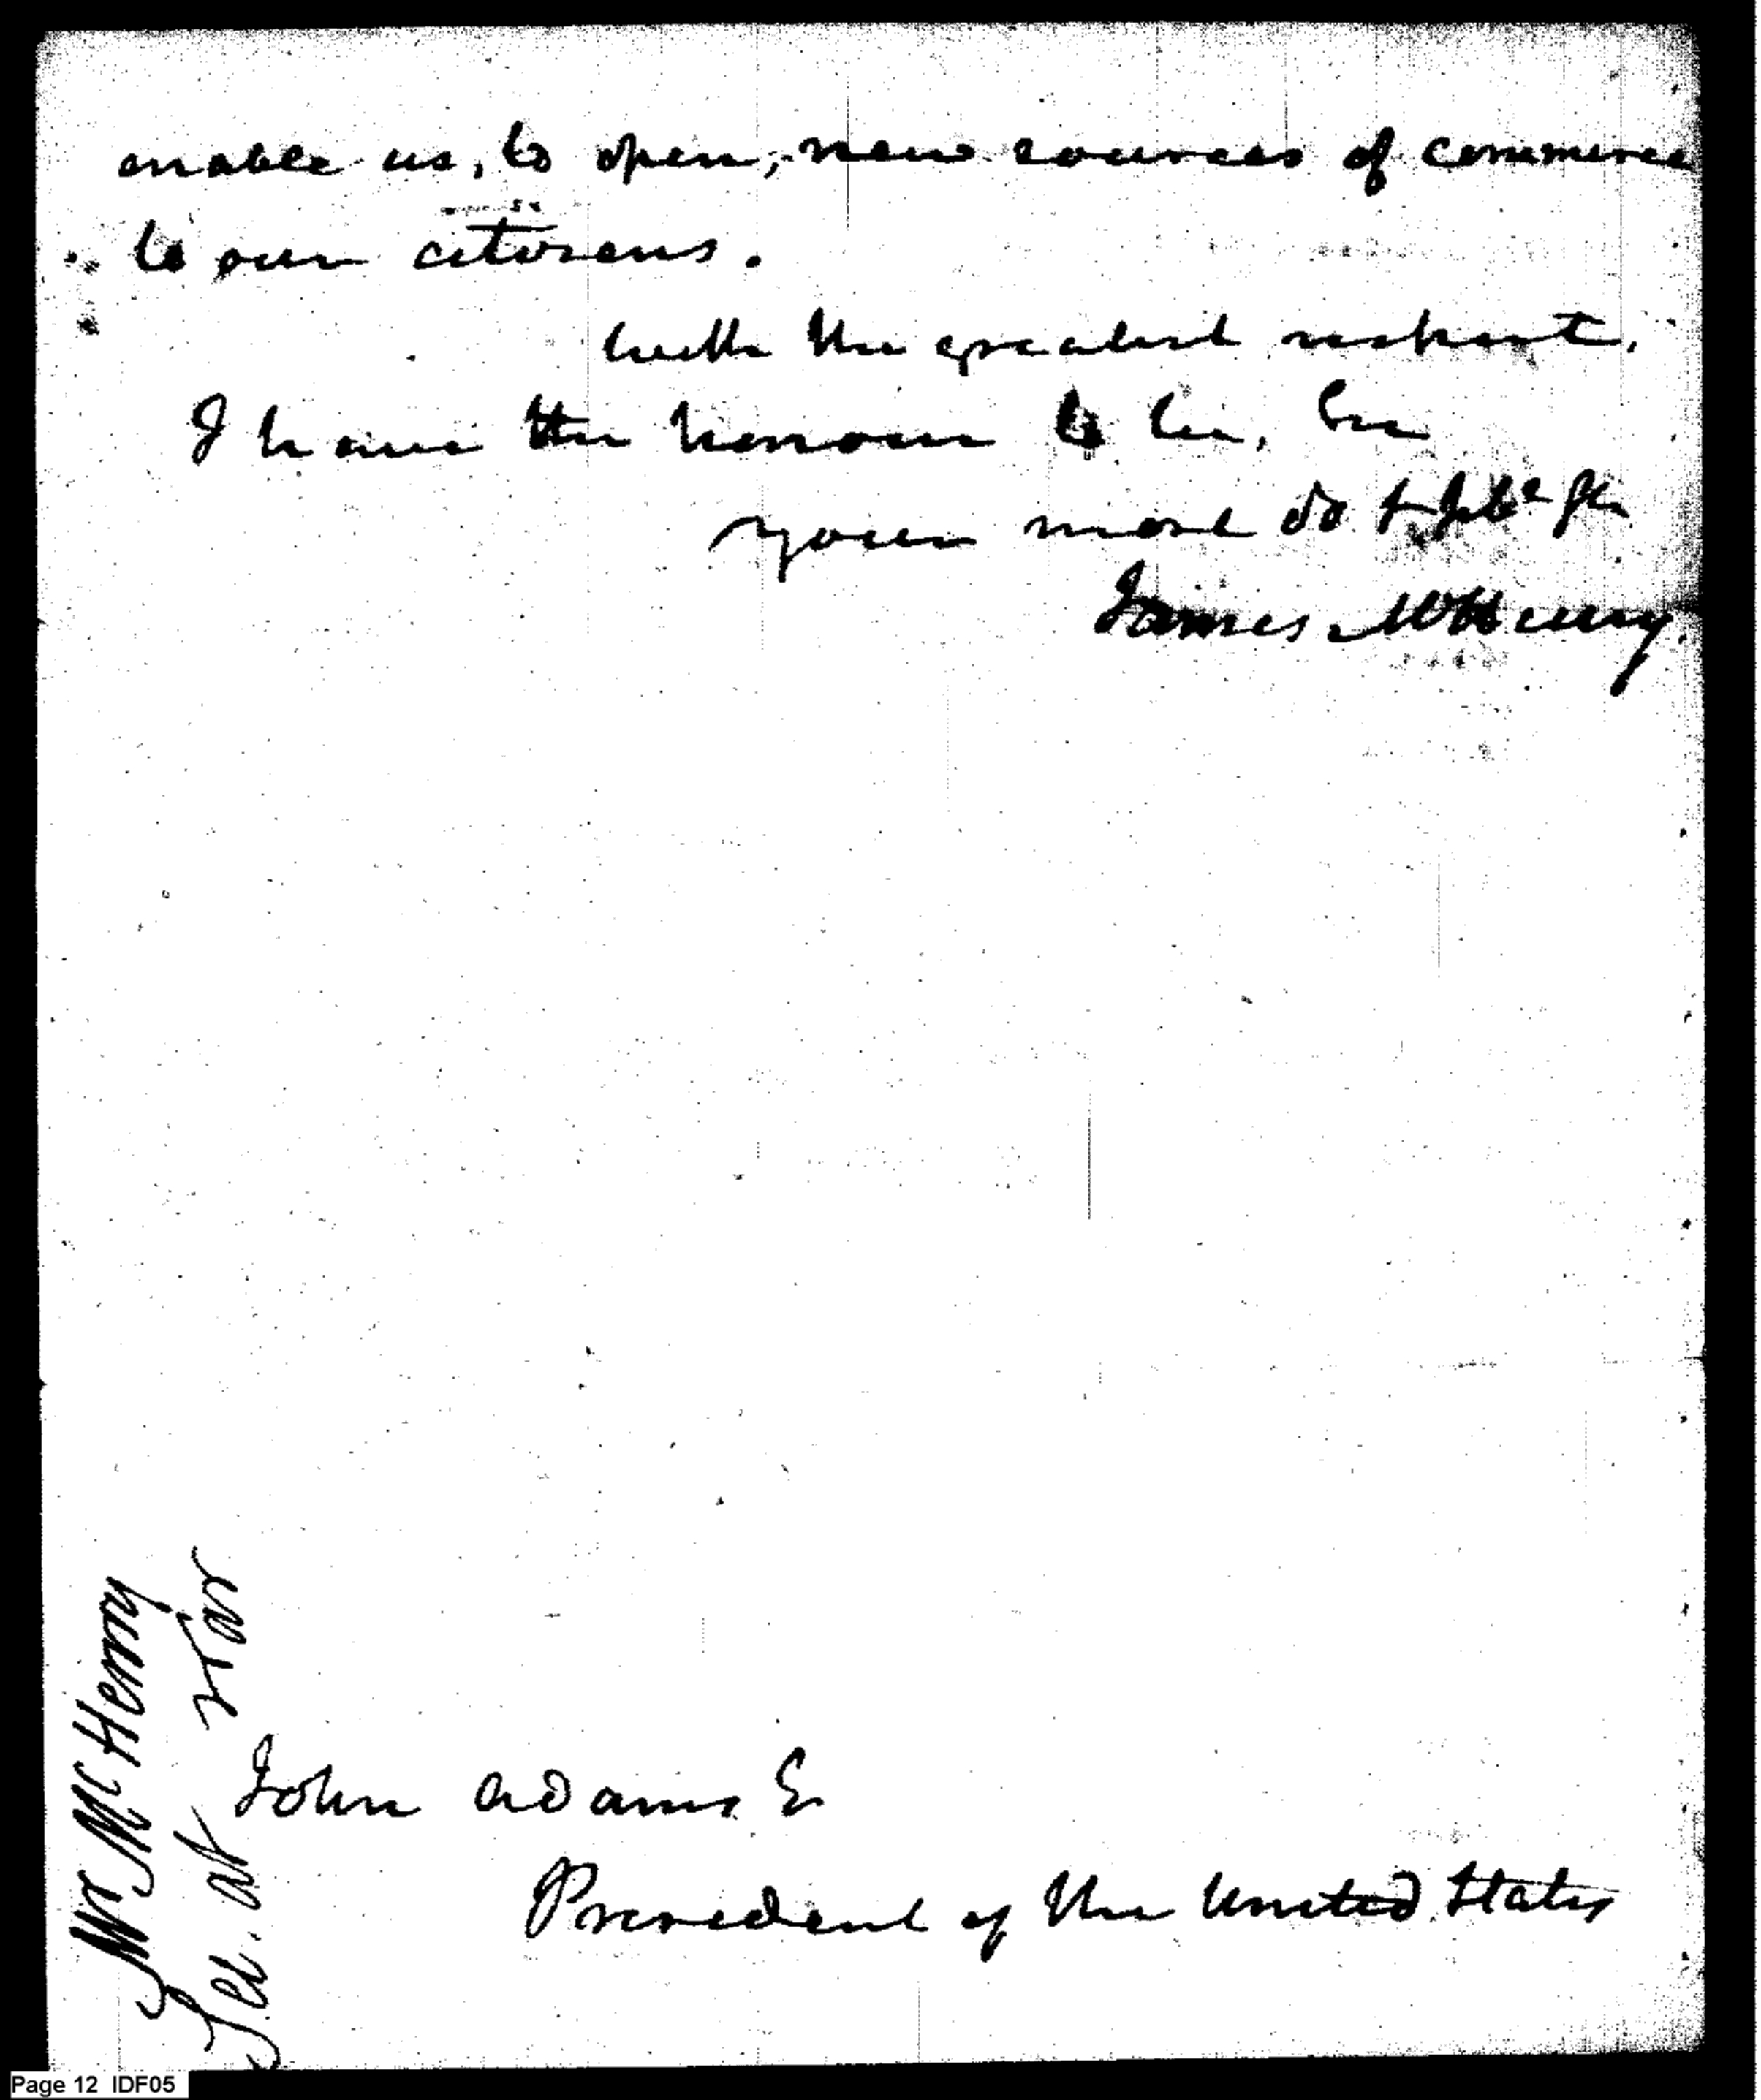 enable us, to open, new sources of commerce
to our citizens.
with the greatest respect,
I have the honour to be, Sir
your most ob & hble st
James McHenry.
John Adams E
President of the United States
Mr McHenry
Sec. at War
Page 12 IDF05